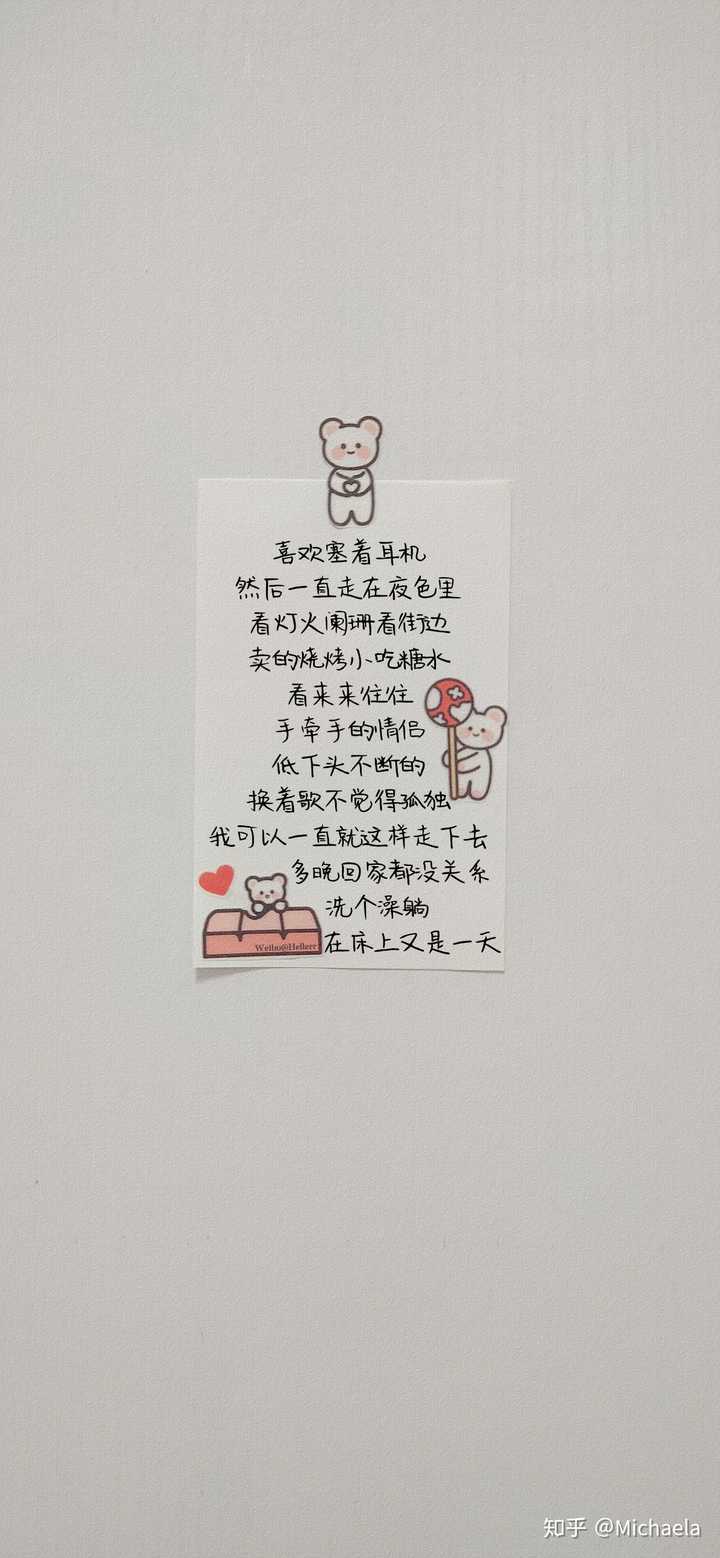 喜欢塞着耳机
然后一直走在夜色里
看灯火阑珊看街边
卖的烧烤小吃糖水
看来来往往
手牵手的情侣
低下头不断的
换着歌不觉得孤独
我可以一直就这样走下去
多晚回家都没关系
洗个澡躺
在床上又是一天
Weibo@Hellerr
知乎 @Michaela